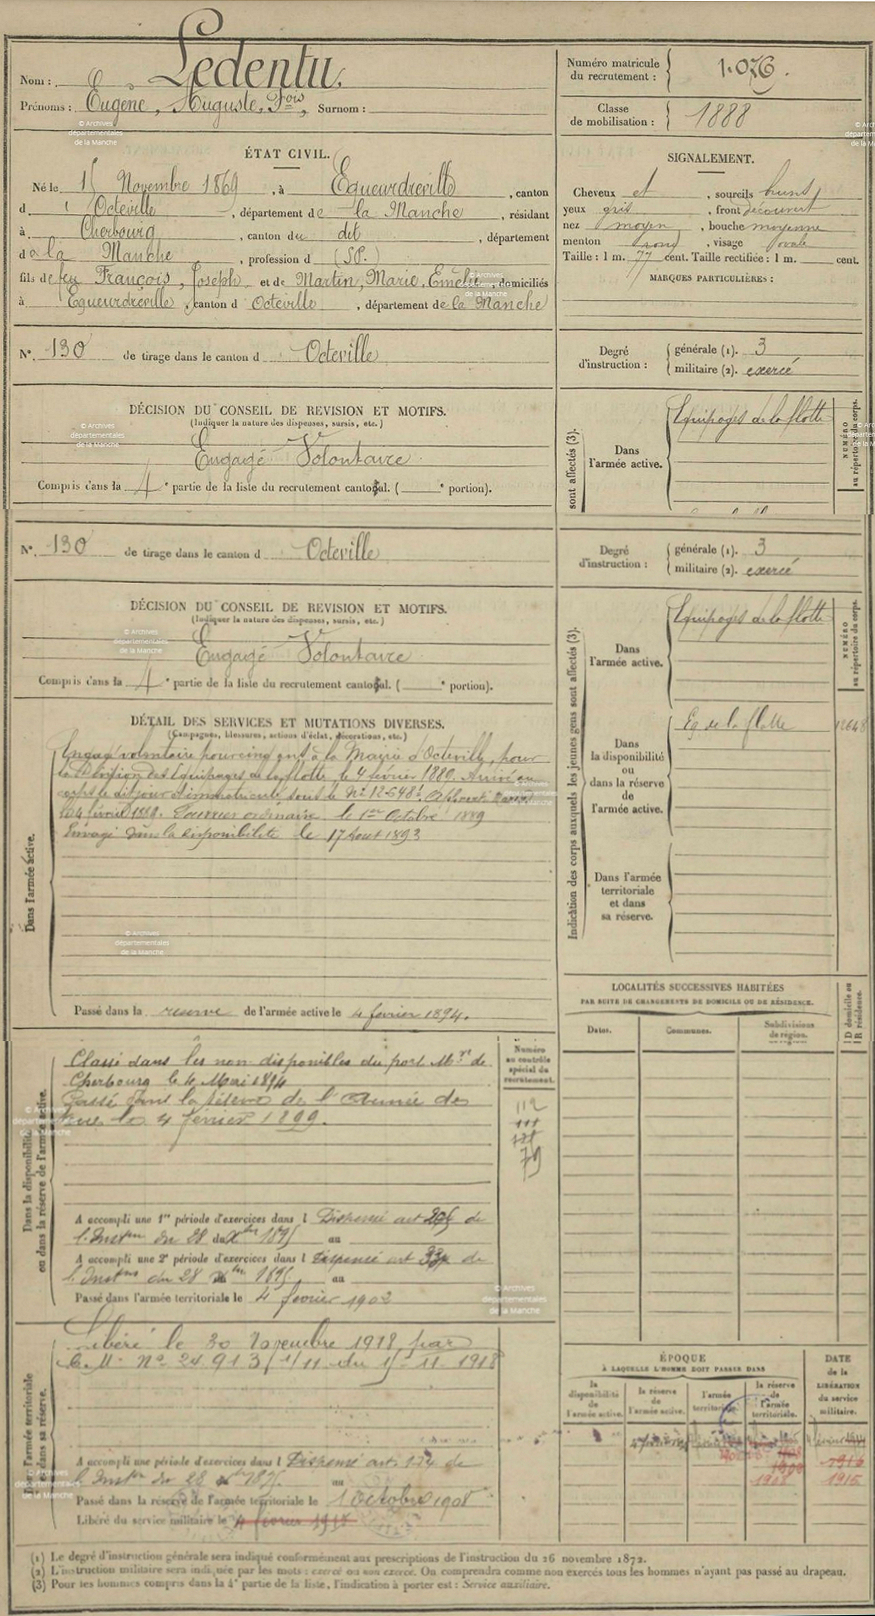 Nom : Ledentu.
Prénoms : Eugène, Auguste, Fois, Surnom :
Numéro matricule du recrutement : 1.076.
Classe de mobilisation : 1888
© Archives départementales de la Manche
ÉTAT CIVIL.
Né le 15 Novembre 1869, à Equeurdreville, canton
d'Octeville, département de la Manche, résidant
à Cherbourg, canton du dit, département
de la Manche, profession d (SP.)
fils de feu François, Joseph et de Martin, Marie, domiciliés
à Equeurdreville, canton d Octeville, département de la Manche
SIGNALEMENT.
Cheveux et, sourcils bruns
yeux gris, front découvert
nez moyen, bouche moyenne
menton rond, visage ovale
Taille : 1 m. 77 cent. Taille rectifiée : 1 m. cent.
MARQUES PARTICULIÈRES :
N° 130 de tirage dans le canton d Octeville
Degré d'instruction : générale (1). 3
militaire (2). exercé
DÉCISION DU CONSEIL DE REVISION ET MOTIFS.
(Indiquer la nature des dispenses, sursis, etc.)
Engagé Volontaire
Compris dans la 4e partie de la liste du recrutement cantonal. ( e portion).
sont affectés (3).
Dans l'armée active. Equipages de la flotte
NUMÉRO au répertoire du corps.
N° 130 de tirage dans le canton d Octeville
Degré d'instruction : générale (1). 3
militaire (2). exercé
DÉCISION DU CONSEIL DE REVISION ET MOTIFS.
(Indiquer la nature des dispenses, sursis, etc.)
Engagé Volontaire
Compris dans la 4e partie de la liste du recrutement cantonal. ( e portion).
Indication des corps auxquels les jeunes gens sont affectés (3).
Dans l'armée active. Equipages de la flotte
NUMÉRO au répertoire du corps.
Dans la disponibilité ou dans la réserve de l'armée active. Eq. de la flotte
Dans l'armée territoriale et dans sa réserve.
DÉTAIL DES SERVICES ET MUTATIONS DIVERSES.
(Campagnes, blessures, actions d'éclat, décorations, etc.)
Dans l'armée active.
Engagé volontaire pour cinq ans à la Mairie d'Octeville, pour
la Division des Equipages de la flotte le 4 février 1889. Arrivé au
corps le dit jour et immatriculé sous le N° 12648.
ordinaire le 1er Octobre 1889
Envoyé dans la disponibilité le 17 Août 1893
Passé dans la réserve de l'armée active le 4 février 1894.
LOCALITÉS SUCCESSIVES HABITÉES
PAR SUITE DE CHANGEMENTS DE DOMICILE OU DE RÉSIDENCE.
Dates. Communes. Subdivisions de région. D domicile ou R résidence.
Dans la disponibilité ou dans la réserve de l'armée active.
Numéro au contrôle spécial du recrutement.
Classé dans les non disponibles du port Mre de
Cherbourg le 4 Mai 1894
Passé dans la réserve de l'Armée de
le 4 février 1899.
112
111
79
A accompli une 1re période d'exercices dans l Dispensé art 205 de
l'Instion du 28 Xbre 1895 au
A accompli une 2e période d'exercices dans l Dispensé art de
l'Instion du 28 Xbre 1895 au
Passé dans l'armée territoriale le 4 février 1902
Dans l'armée territoriale et dans sa réserve.
Libéré le 30 Novembre 1918 par
C.M. N° 24913 1/11 du 15-11-1918
A accompli une période d'exercices dans l Dispensé art. de
l'Instion du 28 Xbre 1895 au
Passé dans la réserve de l'armée territoriale le 1 Octobre 1908
Libéré du service militaire le
ÉPOQUE
À LAQUELLE L'HOMME DOIT PASSER DANS
la disponibilité de l'armée active.
la réserve de l'armée active.
l'armée territoriale.
la réserve de l'armée territoriale.
DATE de la LIBÉRATION du service militaire.
1908
1915
(1) Le degré d'instruction générale sera indiqué conformément aux prescriptions de l'instruction du 26 novembre 1872.
(2) L'instruction militaire sera indiquée par les mots : exercé ou non exercé. On comprendra comme non exercés tous les hommes n'ayant pas passé au drapeau.
(3) Pour les hommes compris dans la 4e partie de la liste, l'indication à porter est : Service auxiliaire.